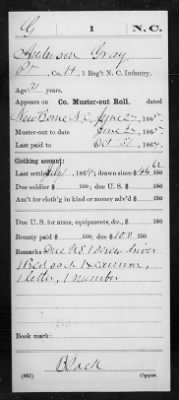 G | 1 | N.C.
Anderson Gray
Pvt., Co. H, 1 Reg't N. C. Infantry.
Age 21 years.
Appears on Co. Muster-out Roll, dated
New Berne N.C. June 27, 1865.
Muster-out to date June 27, 1865.
Last paid to Oct 31, 1864.
Clothing account:
Last settled , 186 ; drawn since $ 100
Due soldier $ 100; due U. S. $ 100
Am't for cloth'g in kind or money adv'd $ 100
Due U. S. for arms, equipments, &c., $ 100
Bounty paid $ 100; due $ 100 100
Remarks Due U.S. 1 Screw driver
1 Letter, 1 number
Book mark:
Black
(861) Copyist.